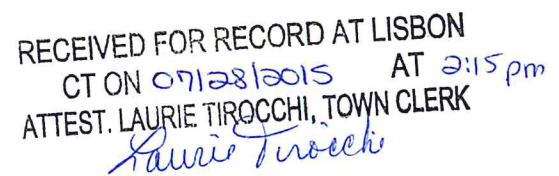 RECEIVED FOR RECORD AT LISBON
CT ON 07/28/2015 AT 2:15 pm
ATTEST. LAURIE TIROCCHI, TOWN CLERK
Laurie Tirocchi